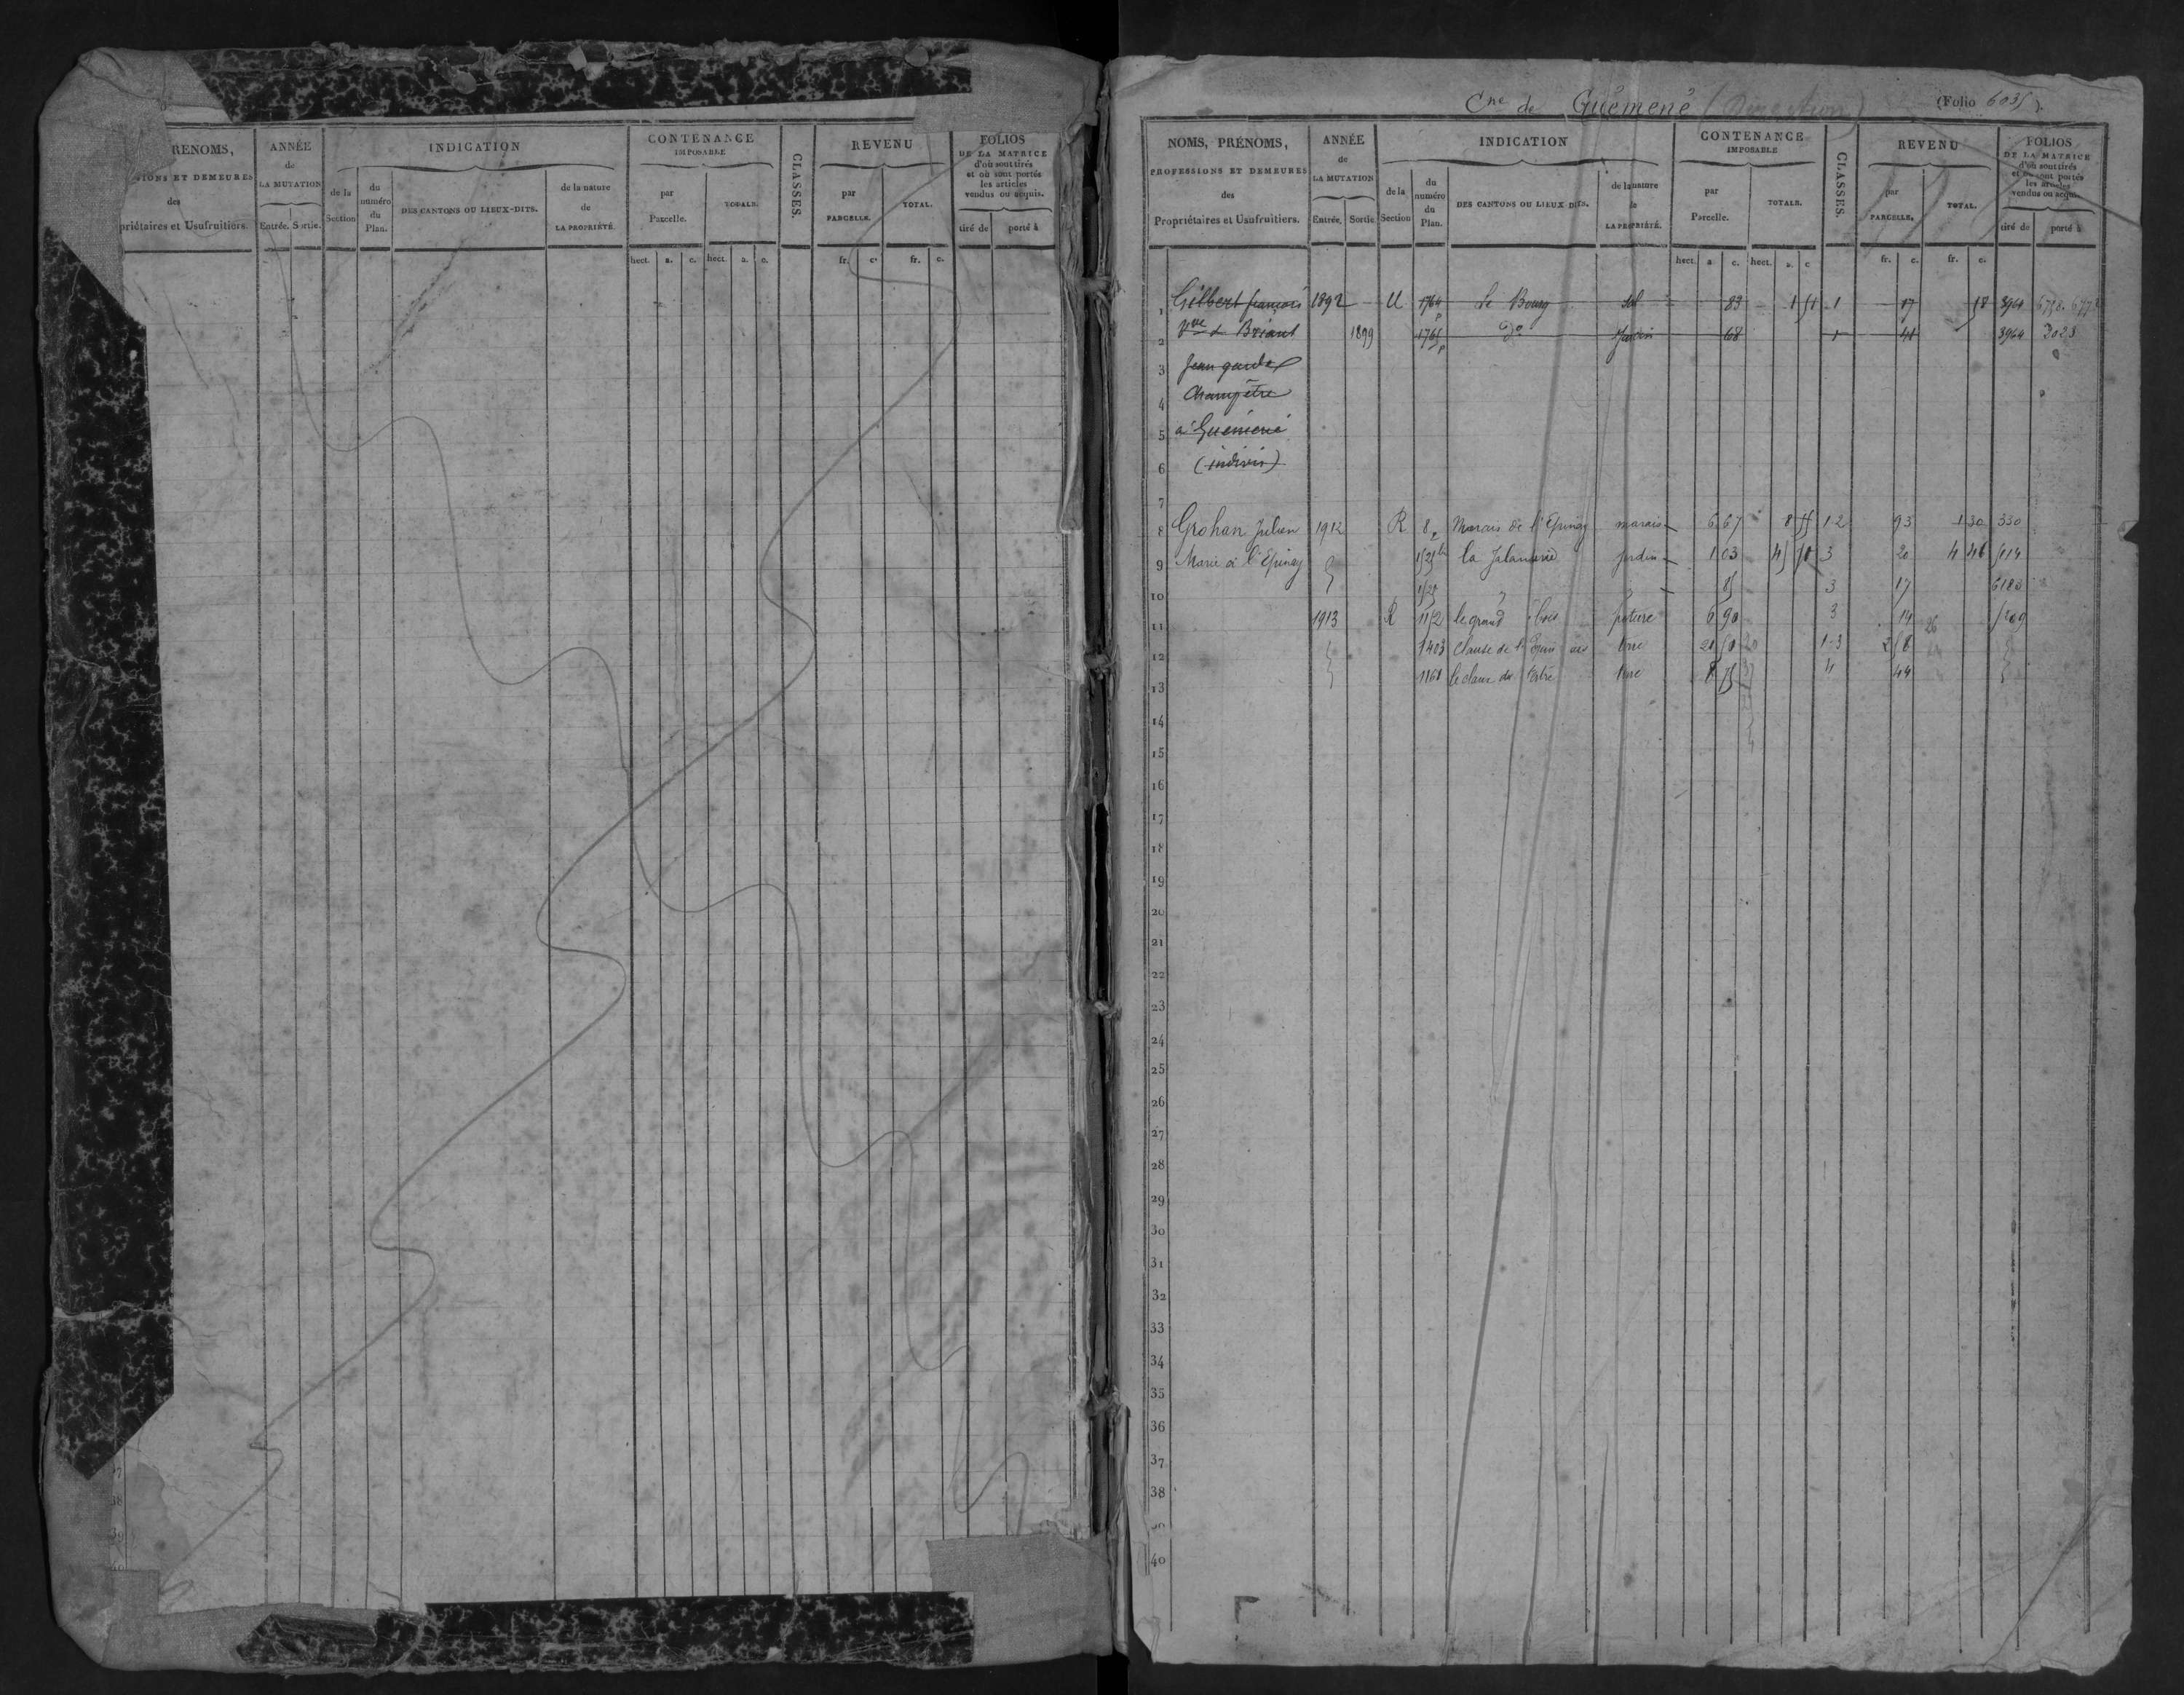 RENOMS,
IONS ET DEMEURES
des
priétaires et Usufruitiers.
ANNÉE
de
LA MUTATION
Entrée. Sortie.
INDICATION
de la
Section
du
numéro
du
Plan.
DES CANTONS OU LIEUX-DITS.
de la nature
de
LA PROPRIÉTÉ.
CONTENANCE
IMPOSABLE
par
Parcelle.
TOTALE.
CLASSES.
REVENU
par
PARCELLE.
TOTAL.
FOLIOS
DE LA MATRICE
d'où sont tirés
et où sont portés
les articles
vendus ou acquis.
tiré de porté à
hect. a. c. hect. a. c. fr. c. fr. c.
38
Cne de Guémené (Folio 6035).
NOMS, PRÉNOMS,
PROFESSIONS ET DEMEURES
des
Propriétaires et Usufruitiers.
ANNÉE
de
LA MUTATION
Entrée. Sortie.
INDICATION
de la
Section
du
numéro
du
Plan.
DES CANTONS OU LIEUX DITS.
de la nature
de
LA PROPRIÉTÉ.
CONTENANCE
IMPOSABLE
par
Parcelle.
TOTALE.
CLASSES.
REVENU
par
PARCELLE.
TOTAL.
FOLIOS
DE LA MATRICE
d'où sont tirés
et où sont portés
les articles
vendus ou acquis
tiré de porté à
hect. a c. hect. a. c fr. c. fr. c.
1 Gilbert françois 1892 U 1764 p Le Bourg sol 83 1 51 1 17 58 3964
2 Vve & Briant 1899 1765 p do Jardin 68 1 41 3964 3028
3 Jean garde
4 Champêtre
5 à Guémené
6 (indivis)
7
8 Grohan Julien 1912 R 8 p Marais de l'Epinay marais 6 67 8 55 1-2 93 1 30 330
9 Marie à l'Epinay la jardin 1 03 45 3 20 4 46 5114
10 85 3 17 6180
11 1913 R 1152 le grand bois pature 6 90 3 14 26
12 1403 terre 1-3 2 58
13 1168 le claux du tertre terre 8 75 4 44
14
15
16
17
18
19
20
21
22
23
24
25
26
27
28
29
30
31
32
33
34
35
36
37
38
40